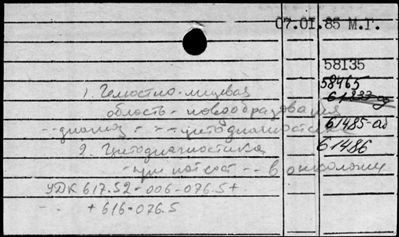 07.01.85 М.Г.
58135
58465
1. Челюстно-лицевая
область - новообразования
-- диагноз - - - цитодиагностика
61485-ад
2. Цитодиагностика
61486
- при - - в онкологии
УДК 617.52-006-076.5+
-- +616-076.5